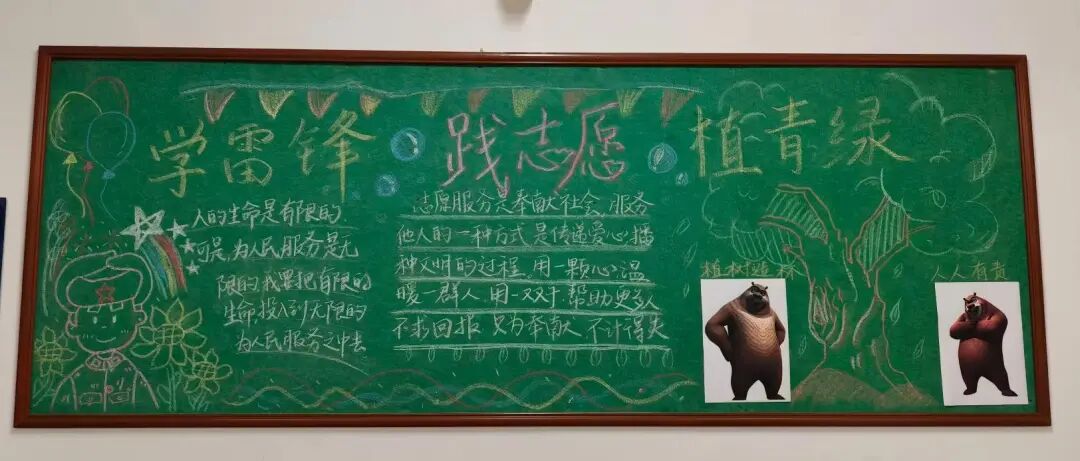 学雷锋 践志愿 植青绿
人的生命是有限的
可是,为人民服务是无
限的,我要把有限的
生命,投入到无限的
为人民服务之中去
志愿服务是奉献社会、服务
他人的一种方式是传递爱心播
种文明的过程。用一颗心温
暖一群人,用一双手,帮助更多人
不求回报 只为奉献 不计得失
植树造林 人人有责